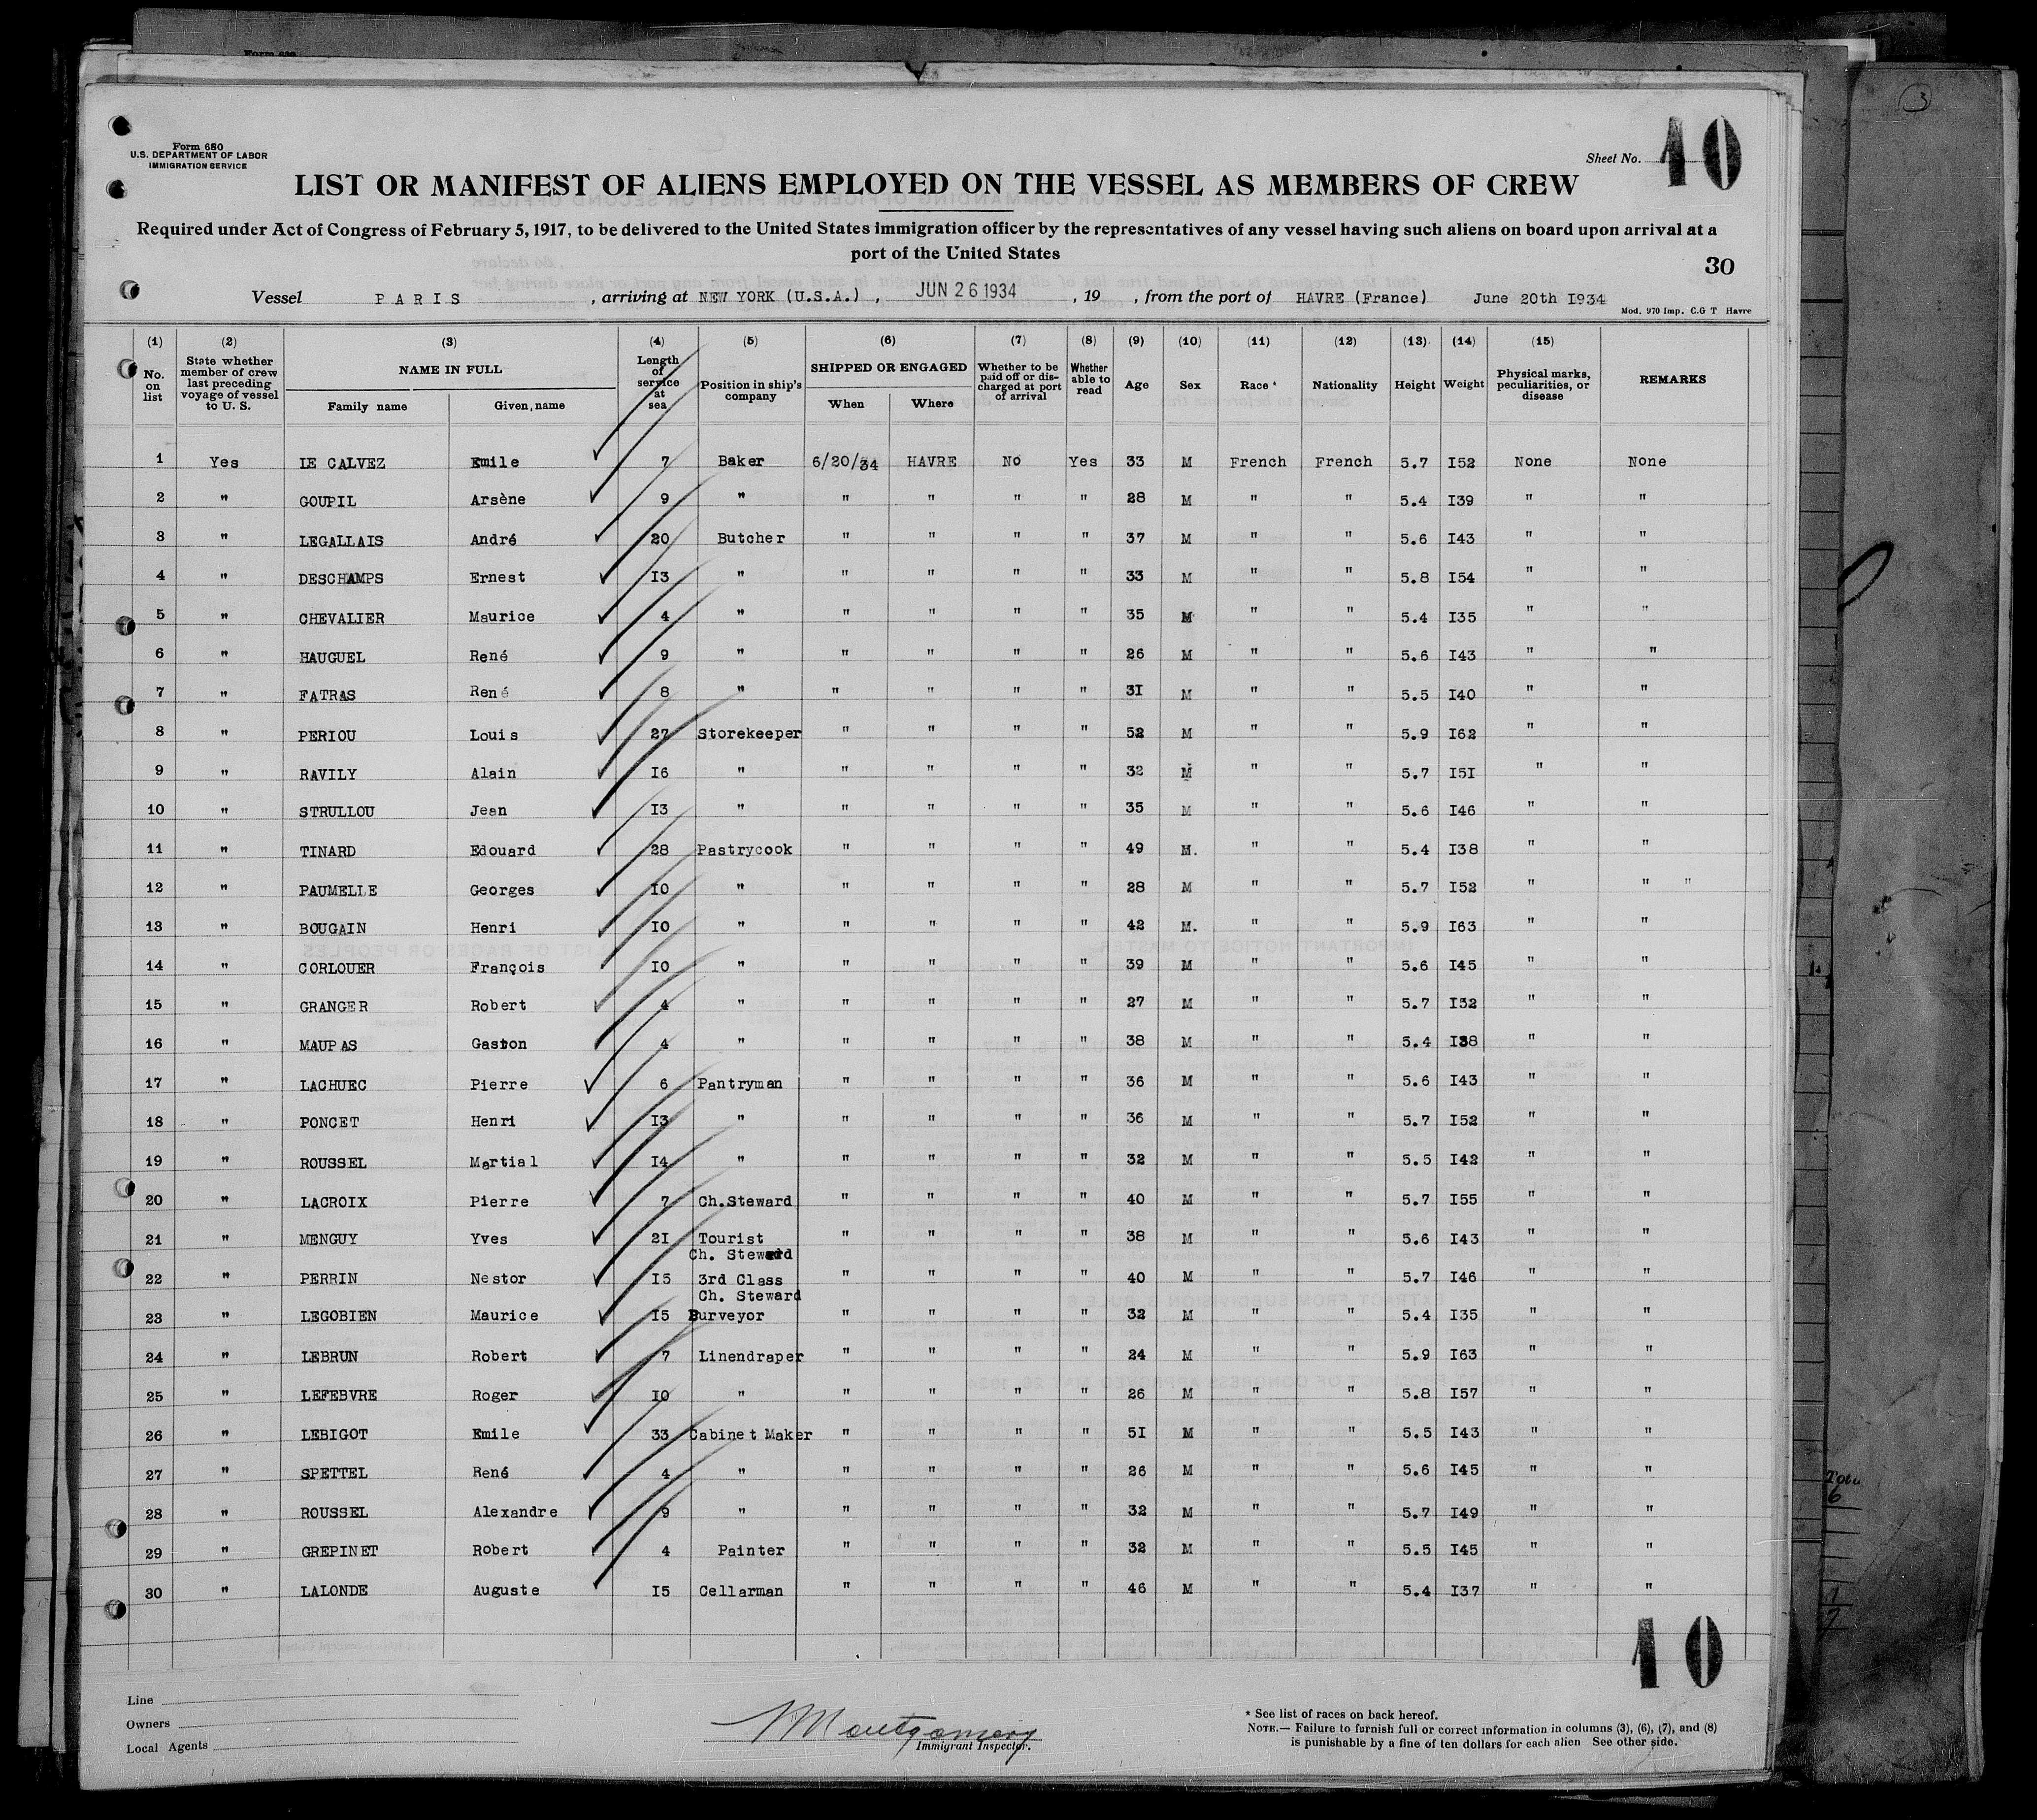 Form 680
U.S. DEPARTMENT OF LABOR
IMMIGRATION SERVICE
Sheet No. 10
LIST OR MANIFEST OF ALIENS EMPLOYED ON THE VESSEL AS MEMBERS OF CREW
Required under Act of Congress of February 5, 1917, to be delivered to the United States immigration officer by the representatives of any vessel having such aliens on board upon arrival at a
port of the United States
30
Vessel PARIS , arriving at NEW YORK (U.S.A.) , JUN 26 1934 , 19 , from the port of HAVRE (France) June 20th I934
Mod. 970 Imp. C.G T Havre
(1) (2) (3) (4) (5) (6) (7) (8) (9) (10) (11) (12) (13) (14) (15)
No. on list State whether member of crew last preceding voyage of vessel to U. S. NAME IN FULL Family name Given name Length of service at sea Position in ship's company SHIPPED OR ENGAGED When Where Whether to be paid off or discharged at port of arrival Whether able to read Age Sex Race * Nationality Height Weight Physical marks, peculiarities, or disease REMARKS
1 Yes LE CALVEZ Emile 7 Baker 6/20/34 HAVRE No Yes 33 M French French 5.7 I52 None None
2 " GOUPIL Arsène 9 " " " " " 28 M " " 5.4 I39 " "
3 " LEGALLAIS André 20 Butcher " " " " 37 M " " 5.6 I43 " "
4 " DESCHAMPS Ernest I3 " " " " " 33 M " " 5.8 I54 " "
5 " CHEVALIER Maurice 4 " " " " " 35 M " " 5.4 I35 " "
6 " HAUGUEL René 9 " " " " " 26 M " " 5.6 I43 " "
7 " FATRAS René 8 " " " " " 3I M " " 5.5 I40 " "
8 " PERIOU Louis 27 Storekeeper " " " " 52 M " " 5.9 I62 " "
9 " RAVILY Alain I6 " " " " " 32 M " " 5.7 I5I " "
10 " STRULLOU Jean I3 " " " " " 35 M " " 5.6 I46 " "
11 " TINARD Edouard 28 Pastrycook " " " " 49 M. " " 5.4 I38 " "
12 " PAUMELLE Georges I0 " " " " " 28 M " " 5.7 I52 " " "
13 " BOUGAIN Henri I0 " " " " " 42 M. " " 5.9 I63 " "
14 " CORLOUER François I0 " " " " " 39 M " " 5.6 I45 " "
15 " GRANGER Robert 4 " " " " " 27 M " " 5.7 I32 " "
16 " MAUPAS Gaston 4 " " " " " 38 M " " 5.4 I38 " "
17 " LACHUEC Pierre 6 Pantryman " " " " 36 M " " 5.6 I43 " "
18 " PONCET Henri I3 " " " " " 36 M " " 5.7 I52 " "
19 " ROUSSEL Martial I4 " " " " " 32 M " " 5.5 I42 " "
20 " LACROIX Pierre 7 Ch.Steward " " " " 40 M " " 5.7 I55 " "
21 " MENGUY Yves 2I Tourist " " " " 38 M " " 5.6 I43 " "
Ch. Steward
22 " PERRIN Nestor I5 3rd Class " " " " 40 M " " 5.7 I46 " "
Ch. Steward
23 " LEGOBIEN Maurice I5 Burveyor " " " " 32 M " " 5.4 I35 " "
24 " LEBRUN Robert 7 Linendraper " " " " 24 M " " 5.9 I63 " "
25 " LEFEBVRE Roger I0 " " " " " 26 M " " 5.8 I57 " "
26 " LEBIGOT Emile 33 Cabinet Maker " " " " 5I M " " 5.5 I43 " "
27 " SPETTEL René 4 " " " " " 26 M " " 5.6 I45 " "
28 " ROUSSEL Alexandre 9 " " " " " 32 M " " 5.7 I49 " "
29 " GREPINET Robert 4 Painter " " " " 32 M " " 5.5 I45 " "
30 " LALONDE Auguste I5 Cellarman " " " " 46 M " " 5.4 I37 " "
10
Line
Owners
Local Agents
Montgomery
Immigrant Inspector.
* See list of races on back hereof.
NOTE.— Failure to furnish full or correct information in columns (3), (6), (7), and (8)
is punishable by a fine of ten dollars for each alien See other side.